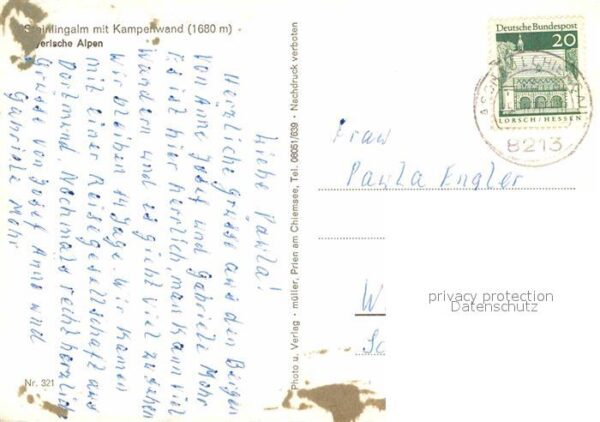 Steinlingalm mit Kampenwand (1680 m)
Bayerische Alpen
Liebe Paula!
Herzliche Grüsse aus den Bergen
von Anne Josef und Gabriele Mohr
Es ist hier herrlich, man kann viel
wandern und es gicht viel zu sehen
Wir bleiben 14 Tage. Wir kamen
mit einer Reisegesellschaft aus
Dortmund. Nochmals recht herzlich
Grüsse von Josef Anne und
Gabriele Mohr
Nr. 321
Photo u. Verlag · müller, Prien am Chiemsee, Tel. 08051/639 · Nachdruck verboten
Deutsche Bundespost
20
LORSCH/HESSEN
8213
Frau
Paula Engler
W
privacy protection
Datenschutz